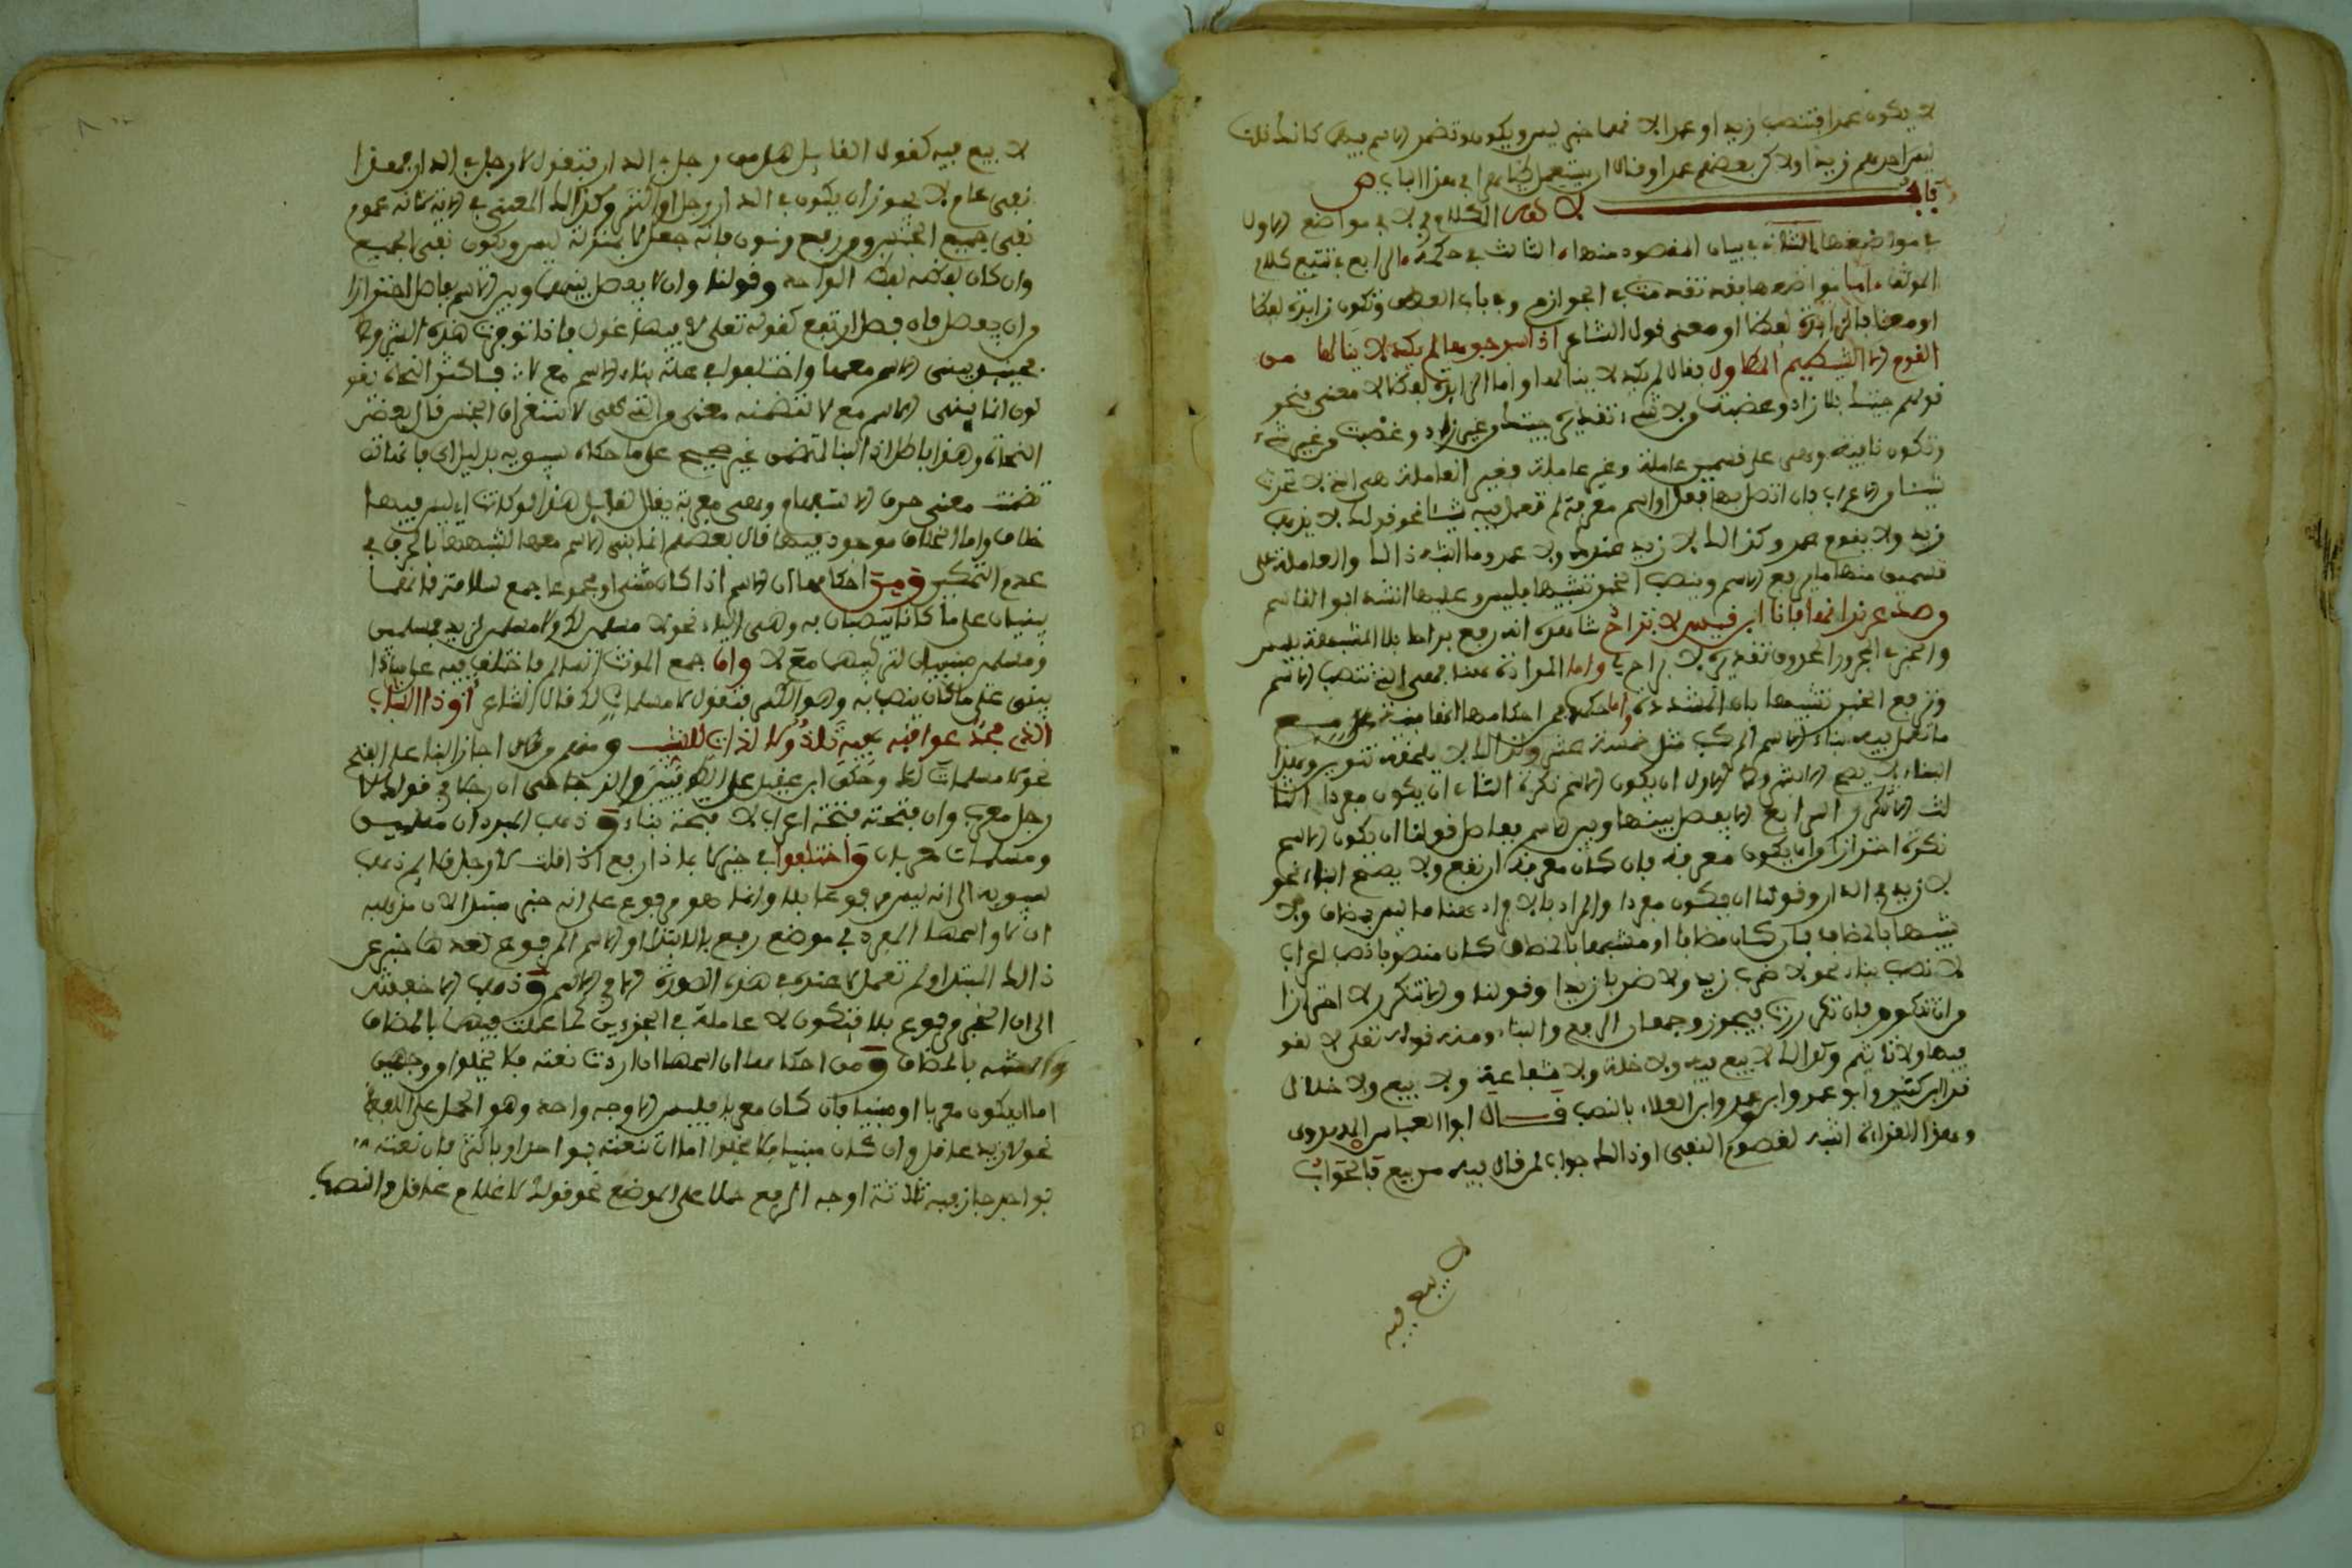 لا يكون عمرا فتنصب زيدا وعمرا لا نهما خبر ليس ويكون وتضمر الاسم فيهما كانك قلت
ليس احدهم زيدا ولا كن بعضهم عمرا وقال
باب لا الكلام في لا في مواضع الاول
في مواضعها الثاني في بيان المقصود منها الثالث في حكمه الرابع في تتبع كلام
المولف اما مواضعها فقد تقدمت في الجوازم وفي باب العطف وتكون زايدة لفظا
او معنى فالزايدة لفظا او معنى قول الشاعر اذا اسرجوها لم يكد لا ينالها من
القوم الا الشيظم المطاول فقال لم يكد لا ينالها واما الزايدة لفظا لا معنى فنحو
قولهم جيت بلا زاد وغضبت ولا شيء تقديره جيت وغير زاد وغضبت وغير شيء
وتكون نافية وهي على قسمين عاملة وغير عاملة فغير العاملة هي التي لا تحدث
شيئا والاعراب فان اتصل بها فعل او اسم معرفة لم تعمل فيه شيئا نحو قولك لا يذهب
زيد ولا يقوم عمرو وكذالك لا زيد عندك ولا عمرو وما اشبه ذالك والعاملة على
قسمين منها ما يرفع الاسم وينصب الخبر تشبيها بليس وعليها انشد ابو القاسم
وصد عن نيرانها فانا ابن قيس لا براح شاهده انه رفع براح بلا المشبهة بليس
والخبر في المجرور المحذوف تقديره لا براح لي واما المرادة هنا فهي التي تنصب الاسم
وترفع الخبر تشبيها بان المشددة واما حكمه من احكامها انها مبنية على
ما تعمل فيه بناء الاسم المركب مثل خمسة عشر ولذالك لا يلحقه تنوين وهذا
البناء لا يصح الا بشروط الاول ان يكون الاسم نكرة الثاني ان يكون مفردا الثا
لث الا تكرر الرابع الا يفصل بينها وبين الاسم بفاصل قولنا ان يكون الاسم
نكرة احترازا وان يكون معرفة فان كان معرفة ارتفع ولا يصح البناء نحو
لا زيد في الدار وقولنا ان يكون مفردا والمراد بالافراد هنا ما ليس بمضاف ولا
شبيها بالمضاف فان كان مضافا او مشبها بالمضاف كان منصوبا نصب اعراب
لا نصب بناء نحو لا ضرب زيد ولا ضربا زيدا وقولنا والا تتكرر لا احترازا
وان تتكرر فان تكررت فيجوز وجهان الرفع والبناء ومنه قوله تعلى لا لغو
فيها ولا تاثيم وكذالك لا بيع فيه ولا خلة ولا شفاعة ولا بيع ولا خلال
قرا ابن كثير وابو عمرو ابن العلاء بالنصب قال ابو العباس المهدوي
وهذا القراءة اشبه لقصد النفي اذ ذالك جواب لمن قال فيه من بيع فالجواب
لا بيع فيه
لا بيع فيه كقول القايل هل من رجل في الدار فتقول لا رجل في الدار فهذا
نفي عام لا يجوز ان يكون في الدار رجل او اكثر وكذالك المعنى في الاية لانه عموم
نفي جميع الجنس ومن رفع ونون فانه جعل لا بمنزلة ليس ويكون نفي الجميع
وان كان لفظه لفظ الواحد وقولنا وان لا يفصل بينها وبين الاسم بفاصل احترازا
وان يفصل فان فصل ارتفع كقوله تعلى لا فيها غول فاذا توفرت هذه الشروط
فحينئذ يبنى الاسم معها واختلفوا في علة بناء الاسم مع لا فاكثر النحاة يقو
لون انما يبنى الاسم مع لا لتضمنه معنى والتي هي لا ستغراق الجنس قال بعض
النحاة وهذا باطل اذ البنا لتضمن غير صحيح على ما حكاه سيبويه بدليل اي فانها قد
تضمنت معنى حرف الاستفهام وهي معربة يقال لقايل هذا قولك اي ليس فيها
خلاف واما الخلاف موجود فيها قال بعضهم انما بنى الاسم معها لشبهها بالحرف في
عدم التمكين ومن احكامها ان الاسم اذا كان مثنى او مجموعا جمع سلامة فانهما
يبنيان على ما كانا ينصبان به وهي الياء نحو لا مسلمين لك ولا مسلمين لزيد فمسلمين
ومسلمين مبنيان لتركيبهما مع لا واما جمع المونث السالم فاختلف فيه
يبنى على ما كان ينصب به وهو الكسر فتقول لا مسلمات لك قال الشاعر اودى الشباب
الذي مجد عواقبه فيه نلذ ولا لذات للشيب ومنهم من اجاز البنا على الفتح
نحو لا مسلمات لك وحكى ابن عقيل عن الكوفيين والزجاجي ان رجلا في قولك لا
رجل معرب وان فتحته فتحة اعراب لا فتحة بناء وذهب المبرد ان مسلمين
ومسلمات معربان واختلفوا في خبر لا بماذا ارتفع اذا قلت لا رجل قايم ذهب
سيبويه الى انه ليس مرفوعا بلا وانما هو مرفوع على انه خبر مبتدا لان مذهبه
ان لا واسمها المفرد في موضع رفع بالابتداء والاسم المرفوع بعدها خبر عن
ذالك المبتدا ولم تعمل لا عنده في هذه الصورة الا في الاسم وذهب الاخفش
الى ان الخبر مرفوع بلا فتكون لا عاملة في الجزءين كما عملت فيهما بالمضاف
والمشبه بالمضاف ومن احكامها ان اسمها ان اردت نعته فلا يخلوا ووجهين
اما ان يكون معربا او مبنيا فان كان معربا فليس الا وجه واحد وهو الحمل على اللفظ
نحو لا زيد عاقل وان كان مبنيا فلا يخلوا اما ان تنعته بواحد او باكثر فان نعته
بواحد جاز فيه ثلاثة اوجه الرفع حملا على الموضع نحو قولك لا غلام عاقل والنصب